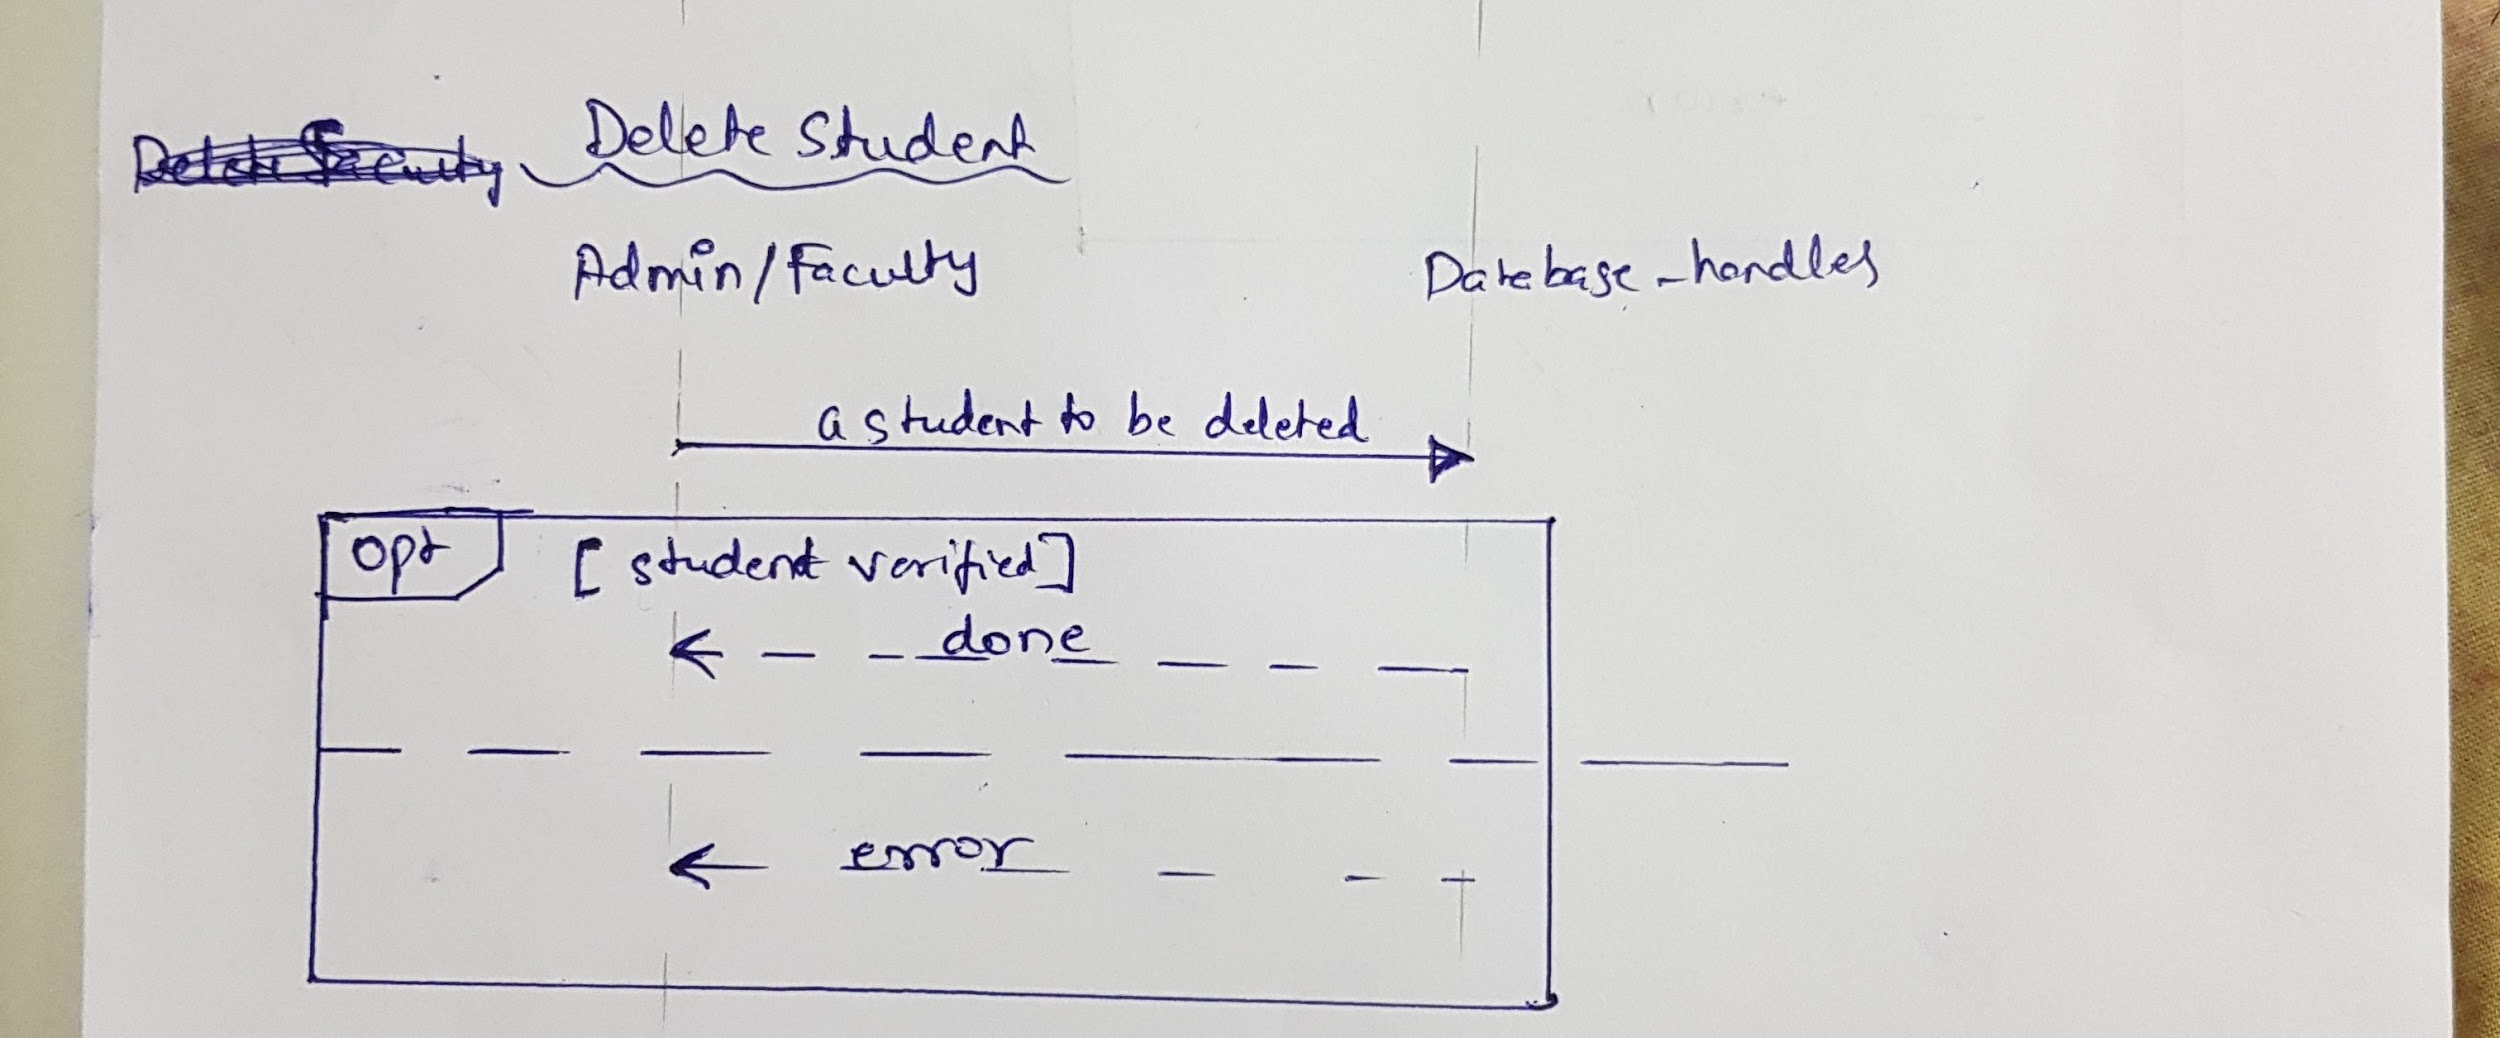 Delete Faculty Delete Student
Admin/Faculty Database_handles
a student to be deleted
opt [student verified]
done
error